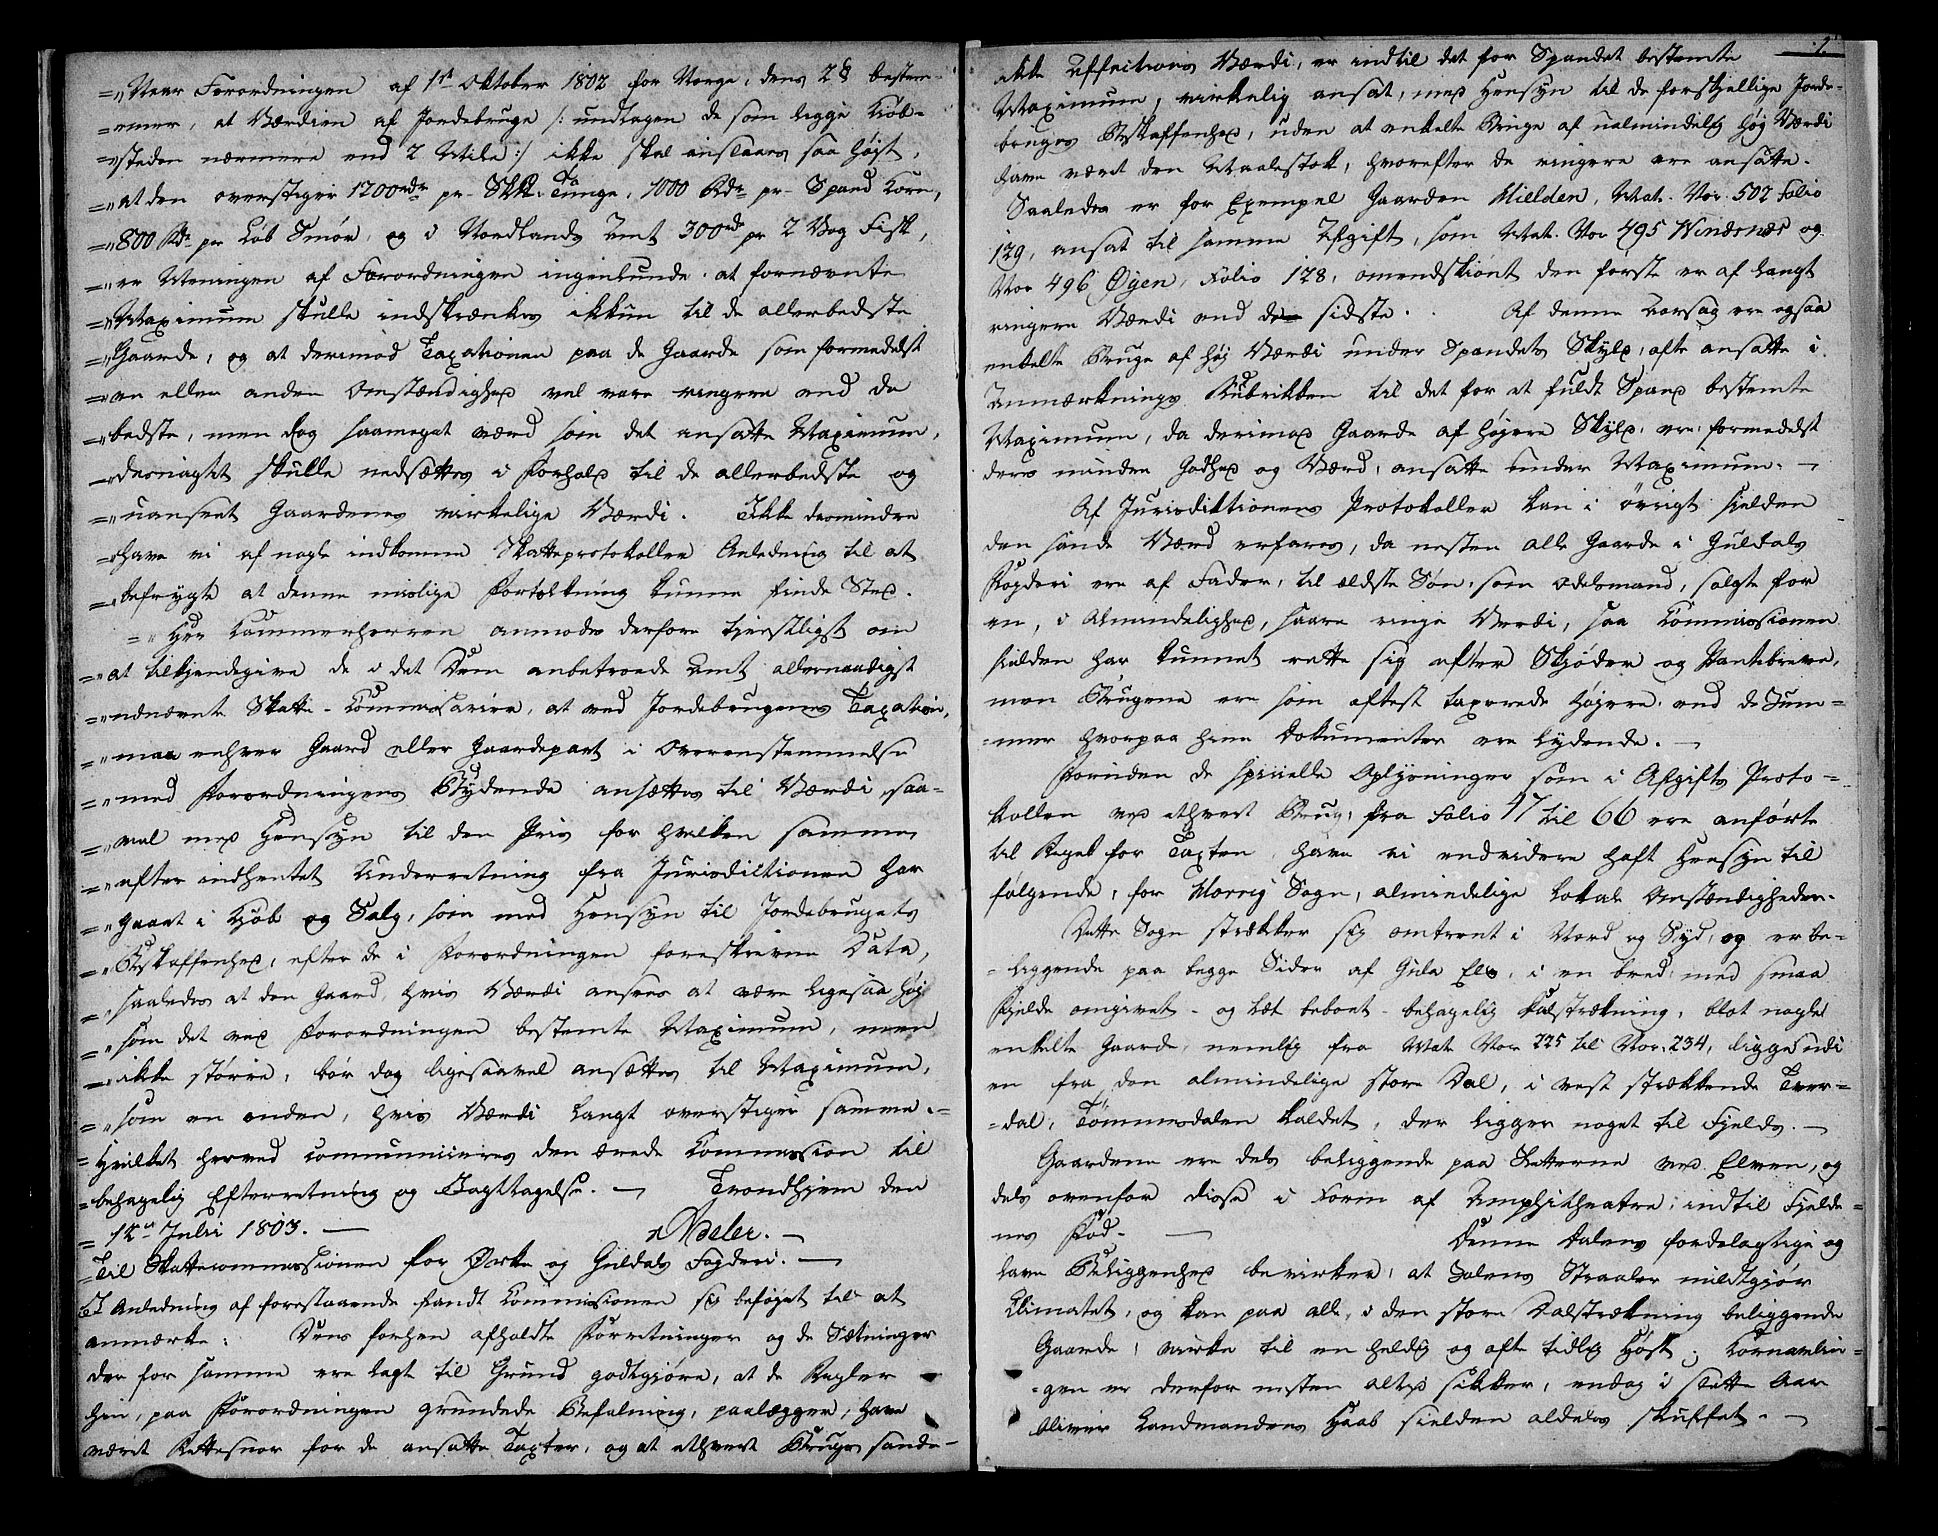 =„Naar Forordningen af 1ste Oktober 1802 for Norge, dens 2 § bestem-
=„emer, at Værdien af Jordebruge /: undtagen de som ligge Kiöb-
=„steden nærmere end 2 Mile :/ ikke skal anslaaes saa højt,
=„at den overstiger 1200rdr pr. Skk. Tunge, 1000 Rdr pr. Spand Korn,
=„800 Rdr pr Löb Smör, og i Nordlands Amt 300rd pr 2 Vog Fisk,
=„er Meningen af Forordningen ingenlunde at fornævnte
=„Maximum skulle indskrænkes ikkun til de allerbedste
=„Gaarde, og at derimod Taxationen paa de Gaarde som formedelst
=„en eller anden Omstændighed vel vare ringere end de
=„bedste, men dog saameget værd som det ansatte Maximum,
=„desuagtet skulle nedsættes i Forhold til de allerbedste og
=„uanseet Gaardenes virkelige Værdi. Ikke desmindre
=„have vi af nogle indkomne Skatteprotokoller Anledning til at
=„befrygte at denne urigtige Fortolkning kunne finde Sted.
=„Hr. Kammerherren anmodes derfore tienstligst om
=„at tilkiendegive de i det Dem anbetroede Amt allernaadigst
=„udnævnte Skatte-Commissairer, at ved Jordebrugenes Taxation,
=„maa enhver Gaard eller Gaardepart i Overenstemmelse
=„med Forordningens Bydende ansættes til Værdi, saa-
=„vel med Hensyn til den Priis for hvilken samme,
=„efter indhentet Underretning fra Jurisdictionen har
=„gaaet i Kiöb og Salg, som med Hensyn til Jordebrugets
=„Beskaffenhed, efter de i Forordningen foreskrevne Data,
=„saaledes at den Gaard, hvis Værdi ansees at være ligesaa höj
=„som det ved Forordningen bestemte Maximum, men
=„ikke större, bör dog ligesaavel ansættes til Maximum,
=„som en anden, hvis Værdi langt overstiger samme.=
=Hvilket herved communiceres den ærede Commission til
=behagelig Efterretning og Iagttagelse. — Trondhjem den
=12te Julii 1803. — Adeler. —
=Til Skattecommissionen for Örke og Guldals Fogderi. —
I Anledning af forestaaende fandt Commissionen sig beföjet til at
anmærke: Dens forhen afholdte Forretninger og de Sætninger
der for samme ere lagt til Grund godtgjöre, at de Regler
hiin, paa Forordningen grundede Befalning, paalægger, have
været Rettesnor for de ansatte Taxter, og at ethvert Brugs sande-
2
ikke Affections Værdi, er indtil det for Spandet bestemte
Maximum, virkelig ansat, med Hensyn til de forskjellige Jorde-
bruges Beskaffenhed, uden at enkelte Bruge af ualmindelig höj Værdi
have været den Maalestok, hvorefter de ringere ere ansatte.
Saaledes er for Exempel Gaarden Mielden, Mat. Nor. 502 Folio
129, ansat til samme Afgift, som Mat. Nor 495 Windsnæs og
Nor 496 Øyen, Folio 128, omendskiönt den förste er af langt
ringere Værdi end de sidste. Af denne Aarsag ere ogsaa
enkelte Bruge af höj Værdi under Spandets Skyld, ofte ansatte i
Anmærknings Rubrikken til det for et fuldt Spand bestemte
Maximum, da derimod Gaarde af höjere Skyld, ere formedelst
deres mindre Godhed og Værd, ansatte under Maximum. —
Af Jurisdiktionens Protokoller kan i övrigt sielden
den sande Værd erfares, da nesten alle Gaarde i Guldals
Fogderi ere af Fader, til ældste Sön, som Odelsmand, solgte for
en, i Almindelighed, saare ringe Værdi, saa Commissionen
sielden har kunnet rette sig efter Skjöder og Pantebreve,
men Brugene ere som oftest taxerede höjere end de Sum=
=mer hvorpaa hine Dokumenter ere lydende. —
Foruden de specielle Oplysninger som i Afgifts Proto-
kollen ved ethvert Brug, fra Folio 47 til 66 ere anförte
til Regel for Taxten, have vi endvidere haft Hensyn til
fölgende, for Horrig Sogn, almindelige Lokale Omstændigheder.
Dette Sogn strækker sig omtrent i Nord og Syd, og er be-
-liggende paa begge Sider af Gula Elv, i en bred, med smaa
Fjelde omgivet - og tæt beboet - behagelig Dalstrækning, blot nogle
enkelte Gaarde, nemlig fra Mat. Nor 225 til Nor. 234, ligge udi
en fra den almindelige store Dal, i vest strækkende Tver=
=dal, Tömmesdalen kaldet, der ligger noget til Fjelds. —
Gaardene ere dels beliggende paa Sletterne ved Elven, og
dels ovenfor disse i Form af Amphitheatre, indtil Fjelde=
nes Fod. — Denne Dalens fordelagtige og
lave Beliggenhed bevirker, at Solens Straaler mildtgjör
Climatet, og kan paa alle, i den store Dalstrækning beliggende
Gaarde, virke til en heldig og ofte tidlig Höst; Kornavlin=
=gen er derfor nesten altid sikker, endog i slette Aar
bliver Landmandens Haab sielden aldeles skuffet. —